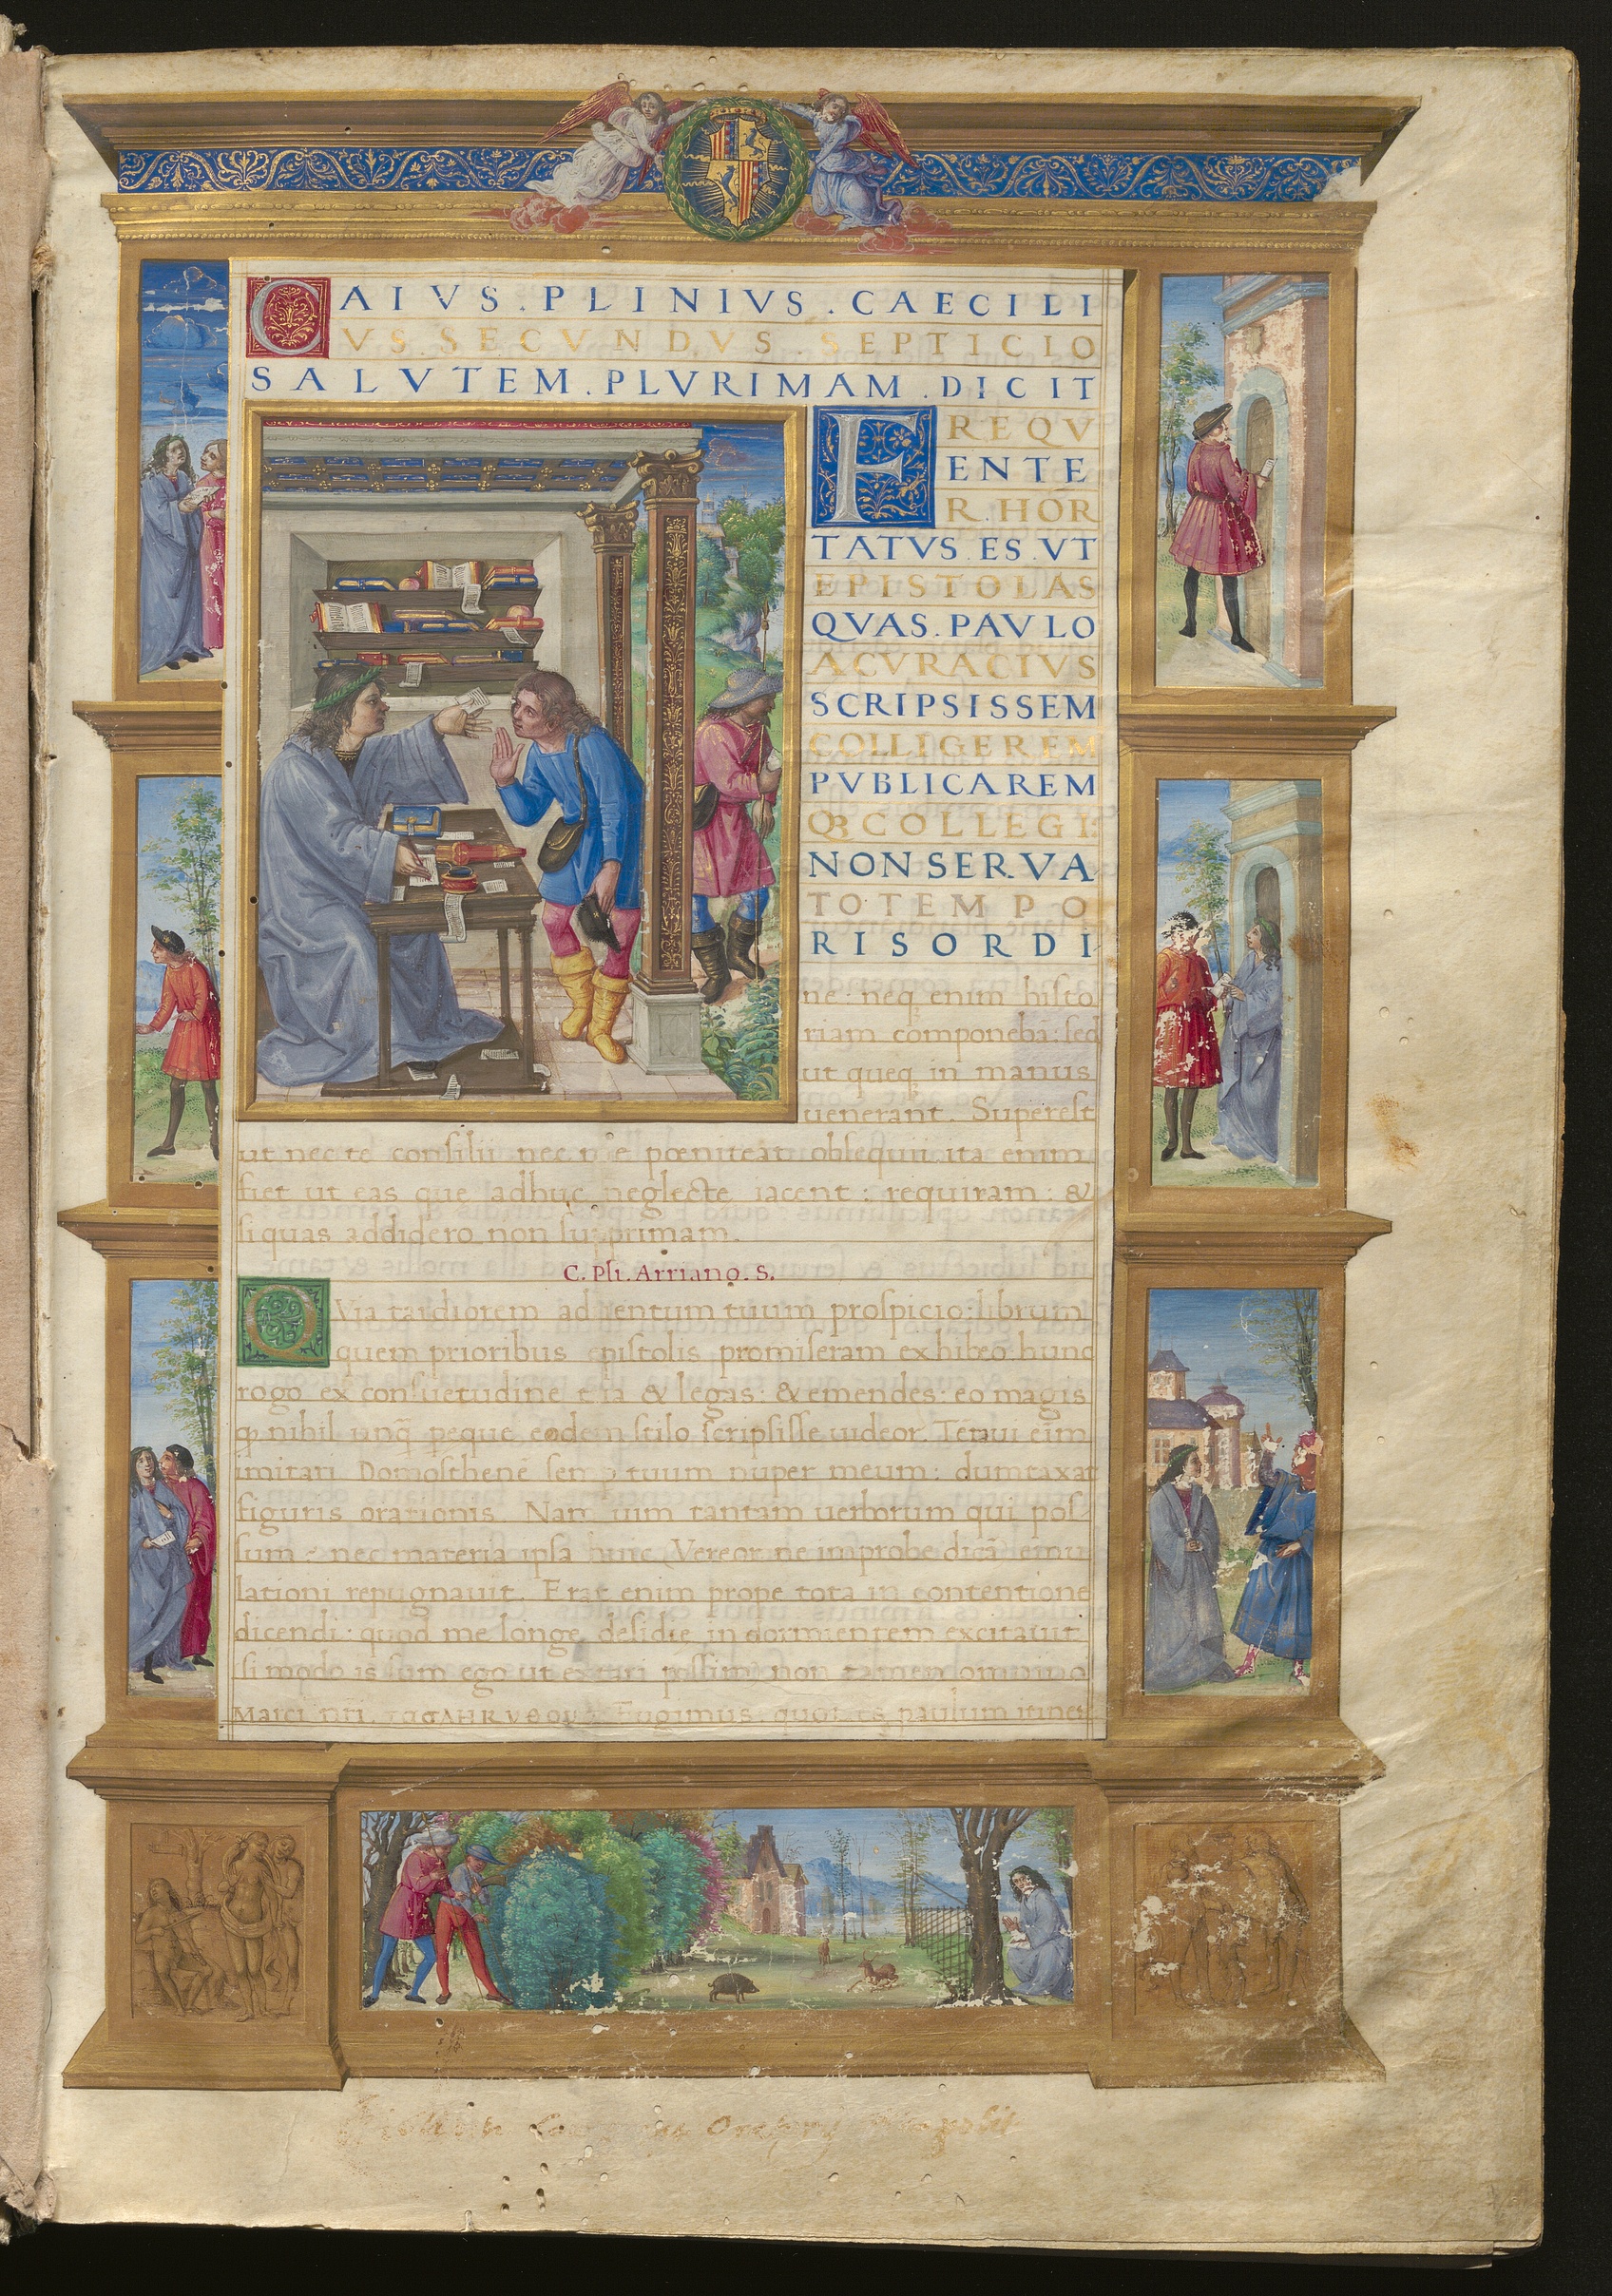 CAIVS . PLINIVS . CAECILI
VS . SECVNDVS . SEPTICIO
SALVTEM . PLVRIMAM . DICIT
FREQV
ENTE
R . HOR
TATVS . ES . VT
EPISTOLAS
QVAS . PAVLO
ACVRACIVS
SCRIPSISSEM
COLLIGEREM
PVBLICAREM
Qꝫ COLLEGI:
NON SERVA
TO TEMPO
RIS ORDI
ne: neq enim histo
riam componebā: sed
ut queq in manus
venerant. Superest
ut nec te consilii nec me pœniteat obsequii. ita enim
fiet ut eas que adhuc neglecte iacent: requiram: &
si quas addidero non supprimam.
C. Pli. Arriano. S.
QVia tardiorem aduentum tuum prospicio: librum
quem prioribus epistolis promiseram exhibeo. hunc
rogo ex consuetudine tua & legas: & emendes: eo magis
ꝙ nihil unq̄ peque eodem stilo scripsisse uideor. Tēptaui eīm
imitari Domosthenē semp tuum nuper meum: dumtaxat
figuris orationis. Nam uim tantam uerborum qui pos
sum nec materia ipsa huic Vereor ne improbe dicā emu
lationi repugnauit. Erat enim prope tota in contentione
dicendi: quod me longe desidie indormientem excitauit
si modo is sum ego ut excitari possim non tamen omnino
Marci nri Fugimus quotiēs paulum itiner